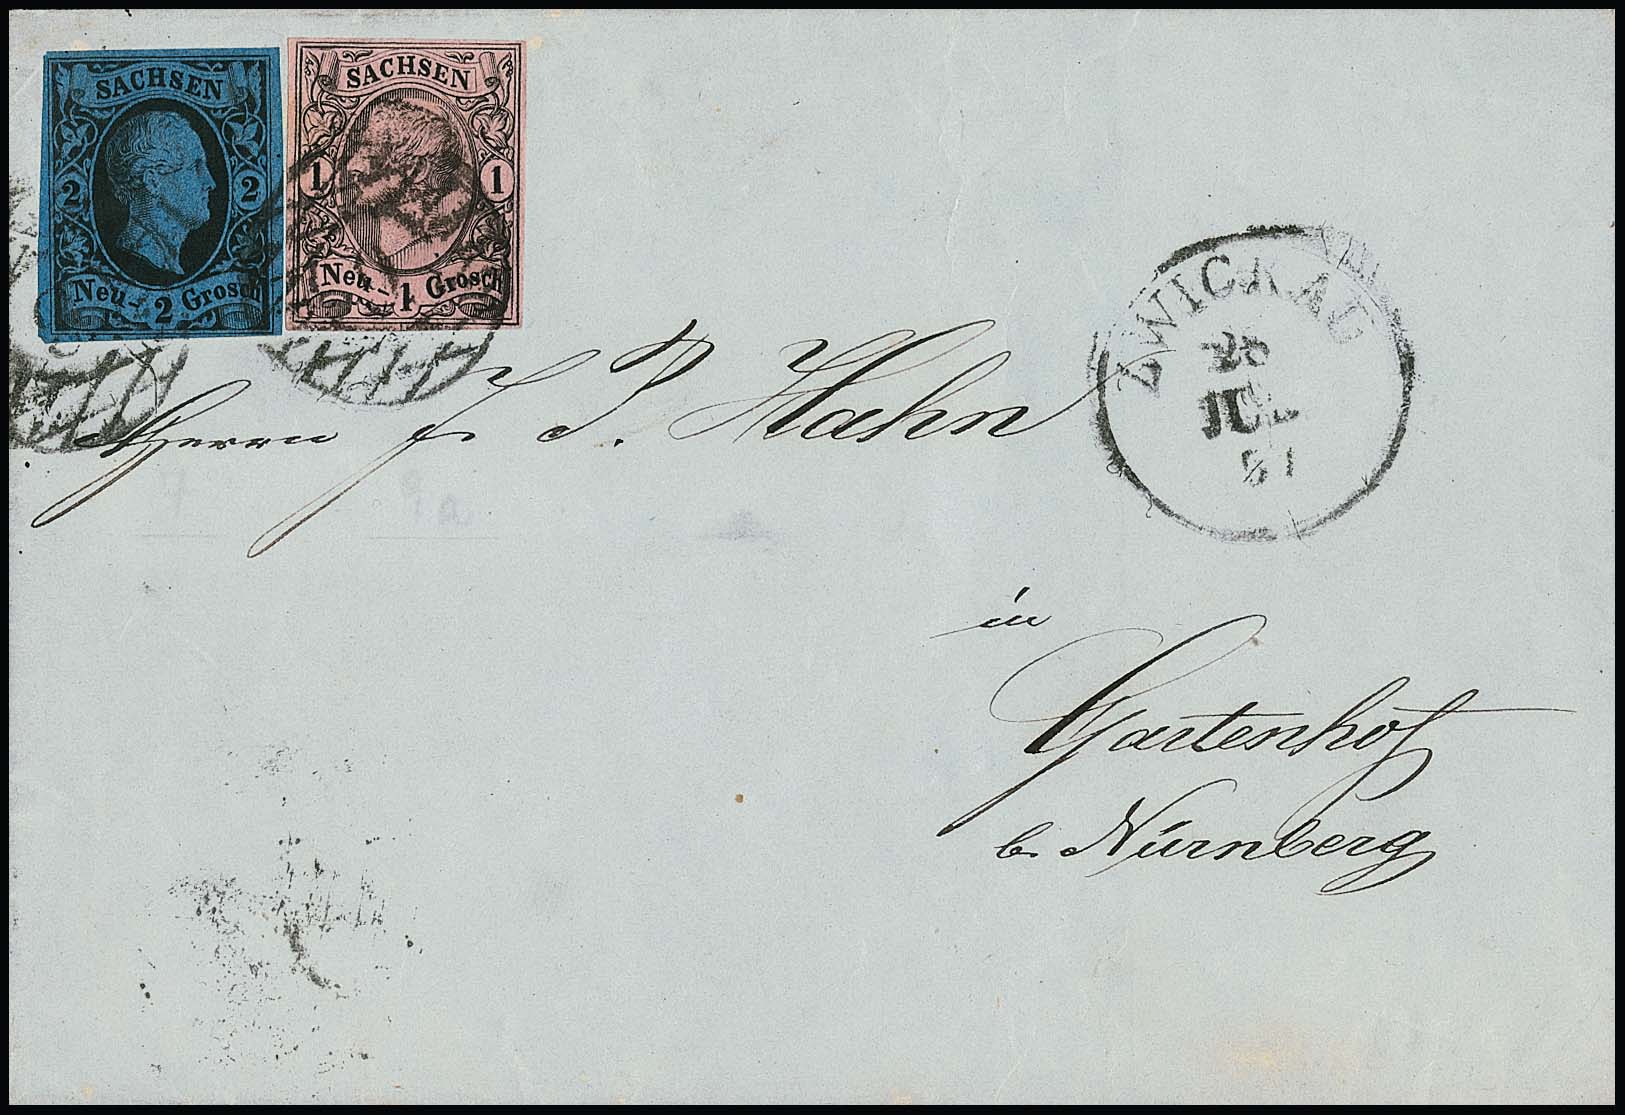 SACHSEN
2 2
Neu- 2 Grosch
SACHSEN
1 1
Neu- 1 Grosch
ZWICKAU
JUL
Herrn J. P. Hahn
in
Gartenhof
b. Nürnberg